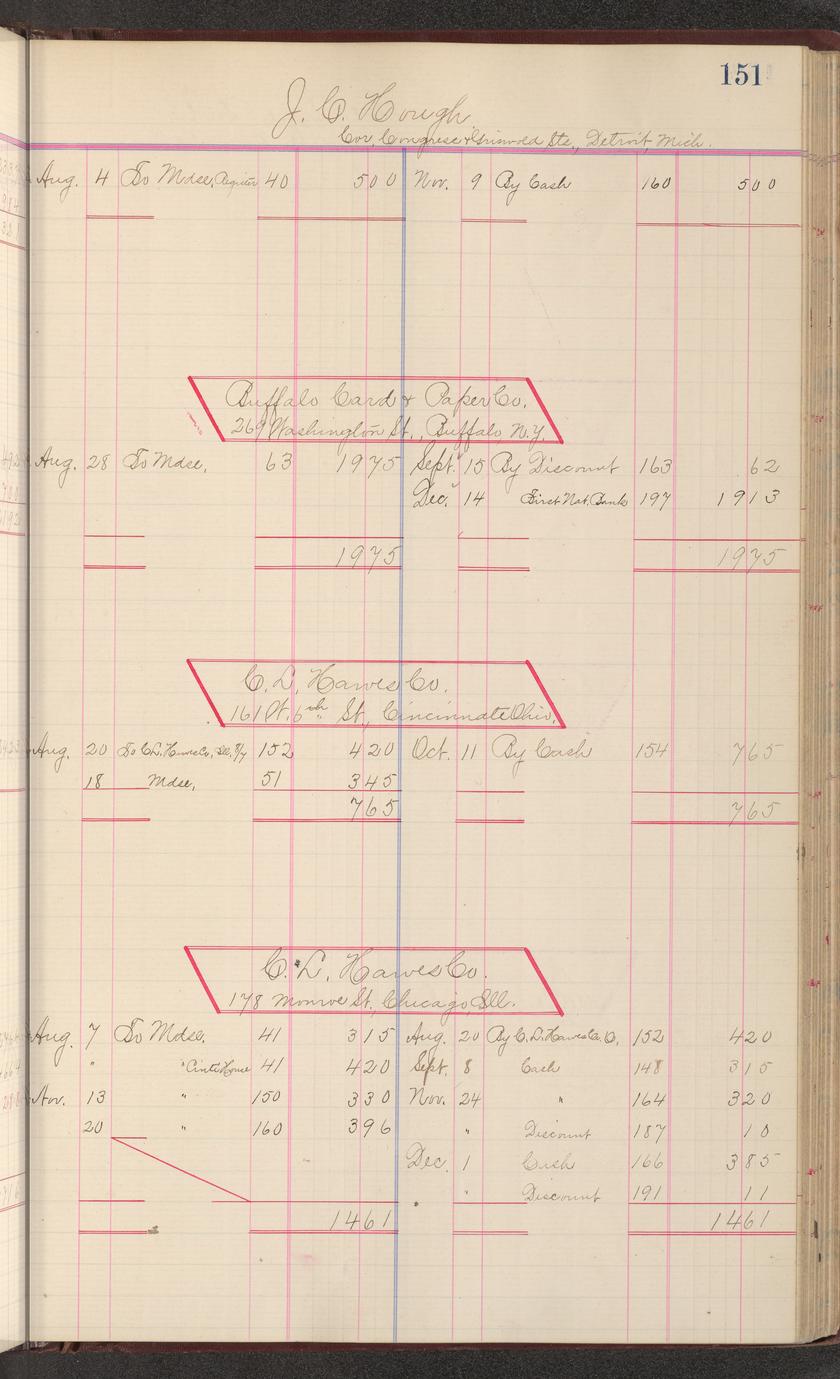 151
J. C. Hough
Cor. Congress & Griswold Sts., Detroit, Mich.
Aug. 4 To Mdse, Register 40 500 Nov. 9 By Cash 160 500
Buffalo Card & Paper Co.
269 Washington St., Buffalo N.Y.
Aug. 28 To Mdse, 63 1975 Sept. 15 By Discount 163 62
Dec. 14 First Nat. Bank 197 1913
1975 1975
C. L. Hawes Co.
161 6th St., Cincinnate Ohio.
Aug. 20 To C.L. Hawes Co., Ill. 152 420 Oct. 11 By Cash 154 765
18 Mdse, 51 345
765 765
C. L. Hawes Co.
178 Monroe St., Chicago, Ill.
Aug. 7 To Mdse. 41 315 Aug. 20 By C.L. Hawes Co. O. 152 420
" " Cinti House 41 420 Sept. 8 Cash 148 315
Nov. 13 " 150 330 Nov. 24 " 164 320
20 " 160 396 " Discount 187 10
Dec. 1 Cash 166 385
" Discount 191 11
1461 1461